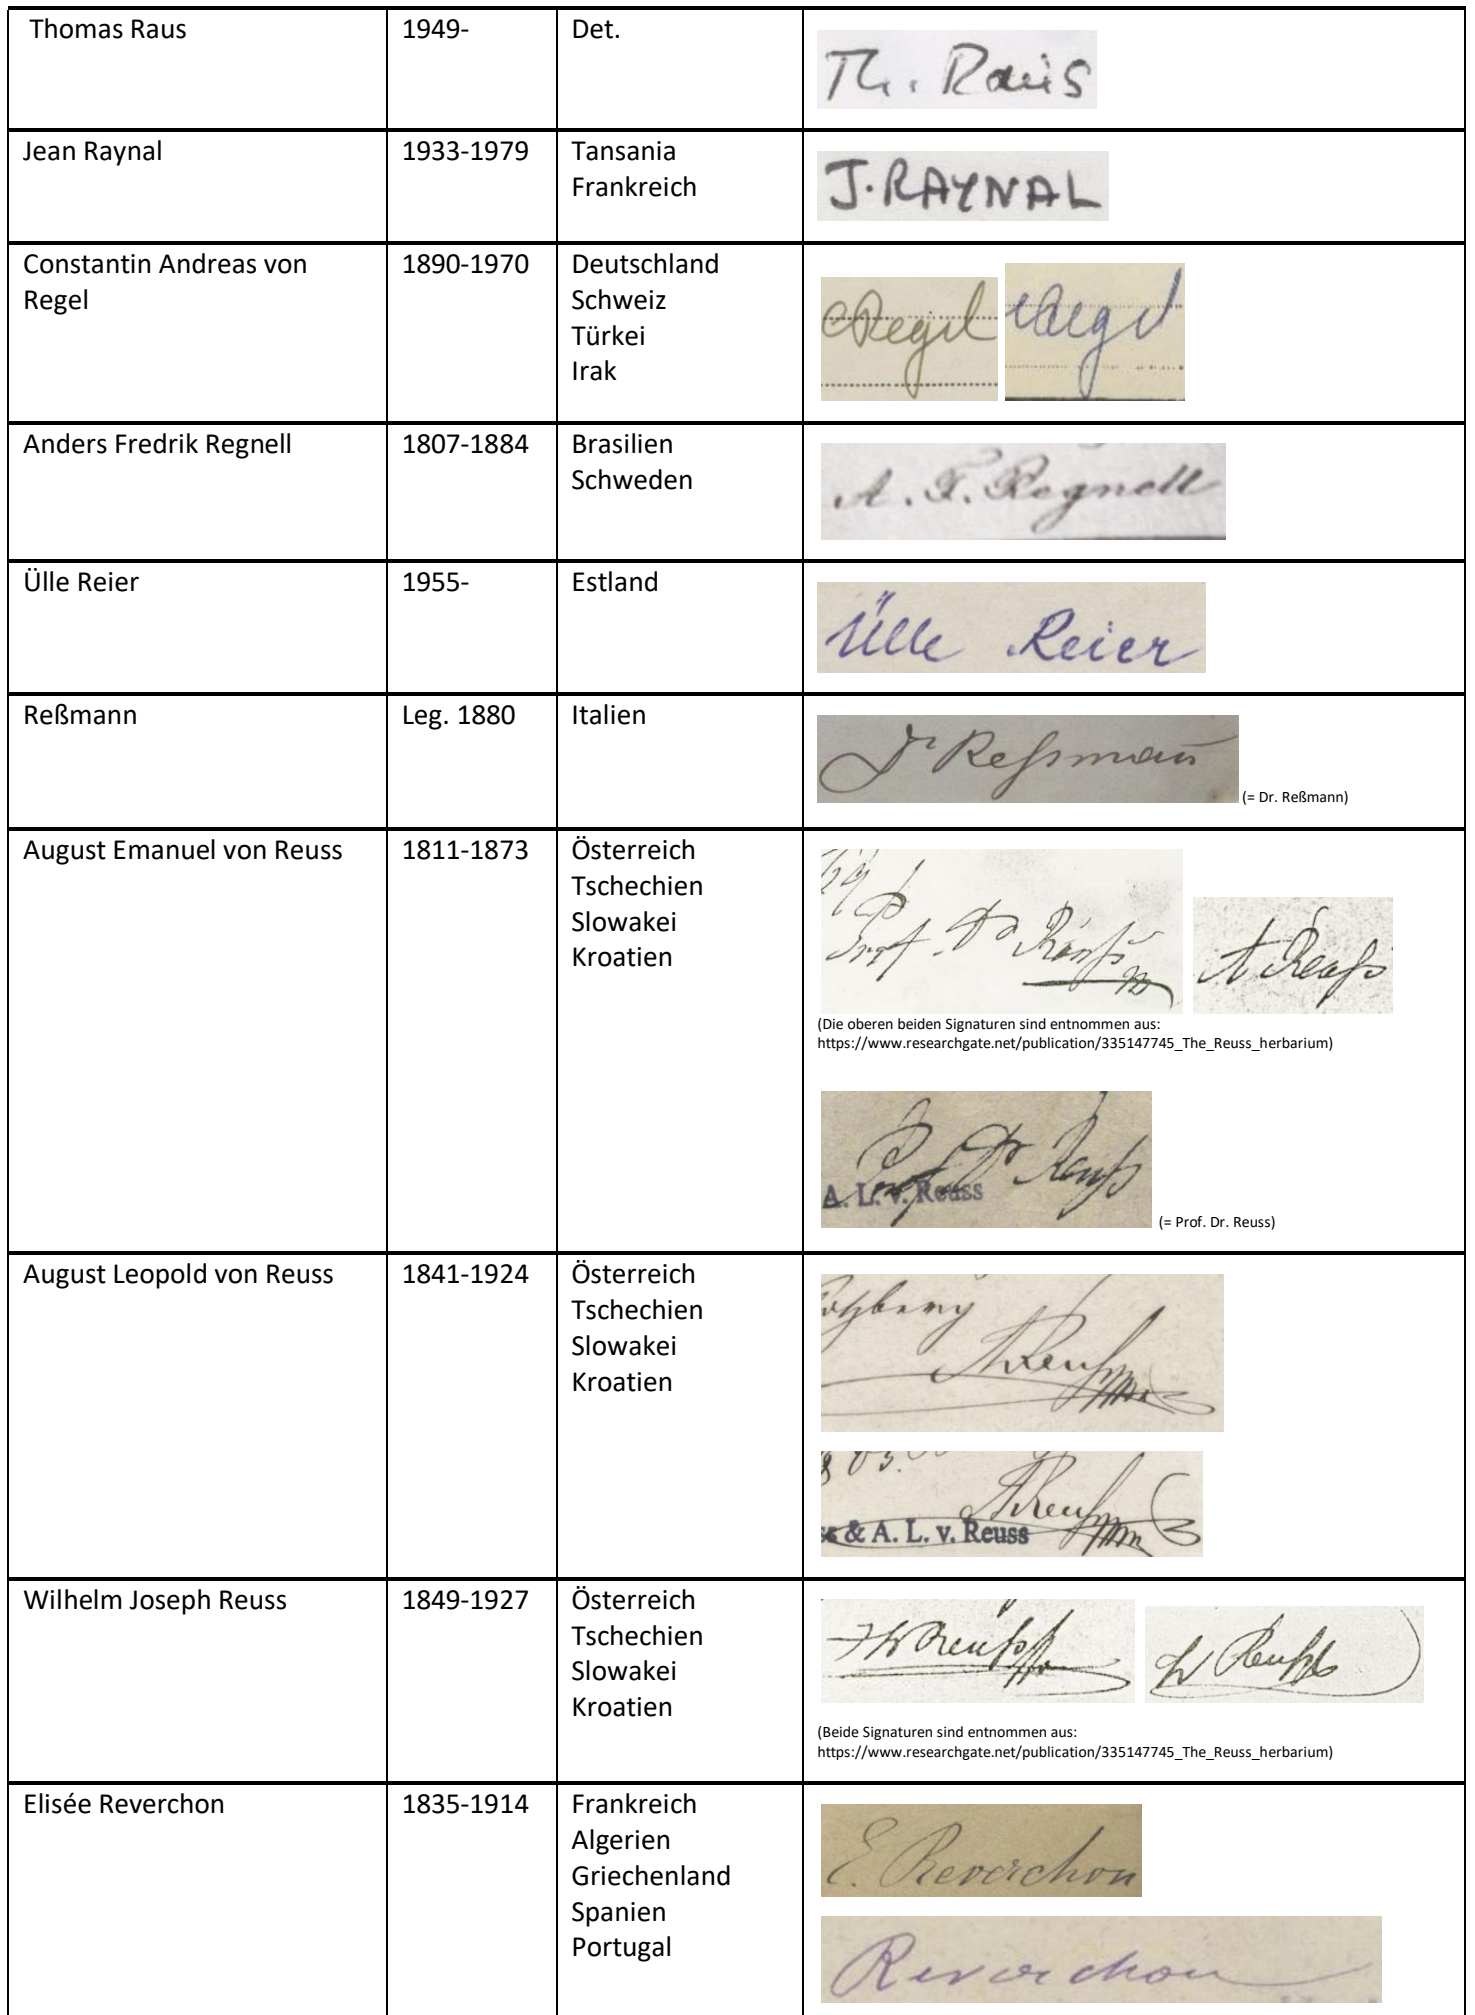 Thomas Raus 1949- Det.
Th. Raus
Jean Raynal 1933-1979 Tansania
Frankreich
J. RAYNAL
Constantin Andreas von 1890-1970 Deutschland
Regel Schweiz
Türkei
Irak
CRegel CRegel
Anders Fredrik Regnell 1807-1884 Brasilien
Schweden
A. F. Regnell
Ülle Reier 1955- Estland
Ülle Reier
Reßmann Leg. 1880 Italien
Dr Reßmann (= Dr. Reßmann)
August Emanuel von Reuss 1811-1873 Österreich
Tschechien
Slowakei
Kroatien
Prof. Dr Reuß A Reuß
(Die oberen beiden Signaturen sind entnommen aus:
https://www.researchgate.net/publication/335147745_The_Reuss_herbarium)
Prof. Dr Reuß
A. L. v. Reuss
(= Prof. Dr. Reuss)
August Leopold von Reuss 1841-1924 Österreich
Tschechien
Slowakei
Kroatien
AReuß
AReuß
& A. L. v. Reuss
Wilhelm Joseph Reuss 1849-1927 Österreich
Tschechien
Slowakei
Kroatien
W Reuß
(Beide Signaturen sind entnommen aus:
https://www.researchgate.net/publication/335147745_The_Reuss_herbarium)
Elisée Reverchon 1835-1914 Frankreich
Algerien
Griechenland
Spanien
Portugal
E. Reverchon
Reverchon